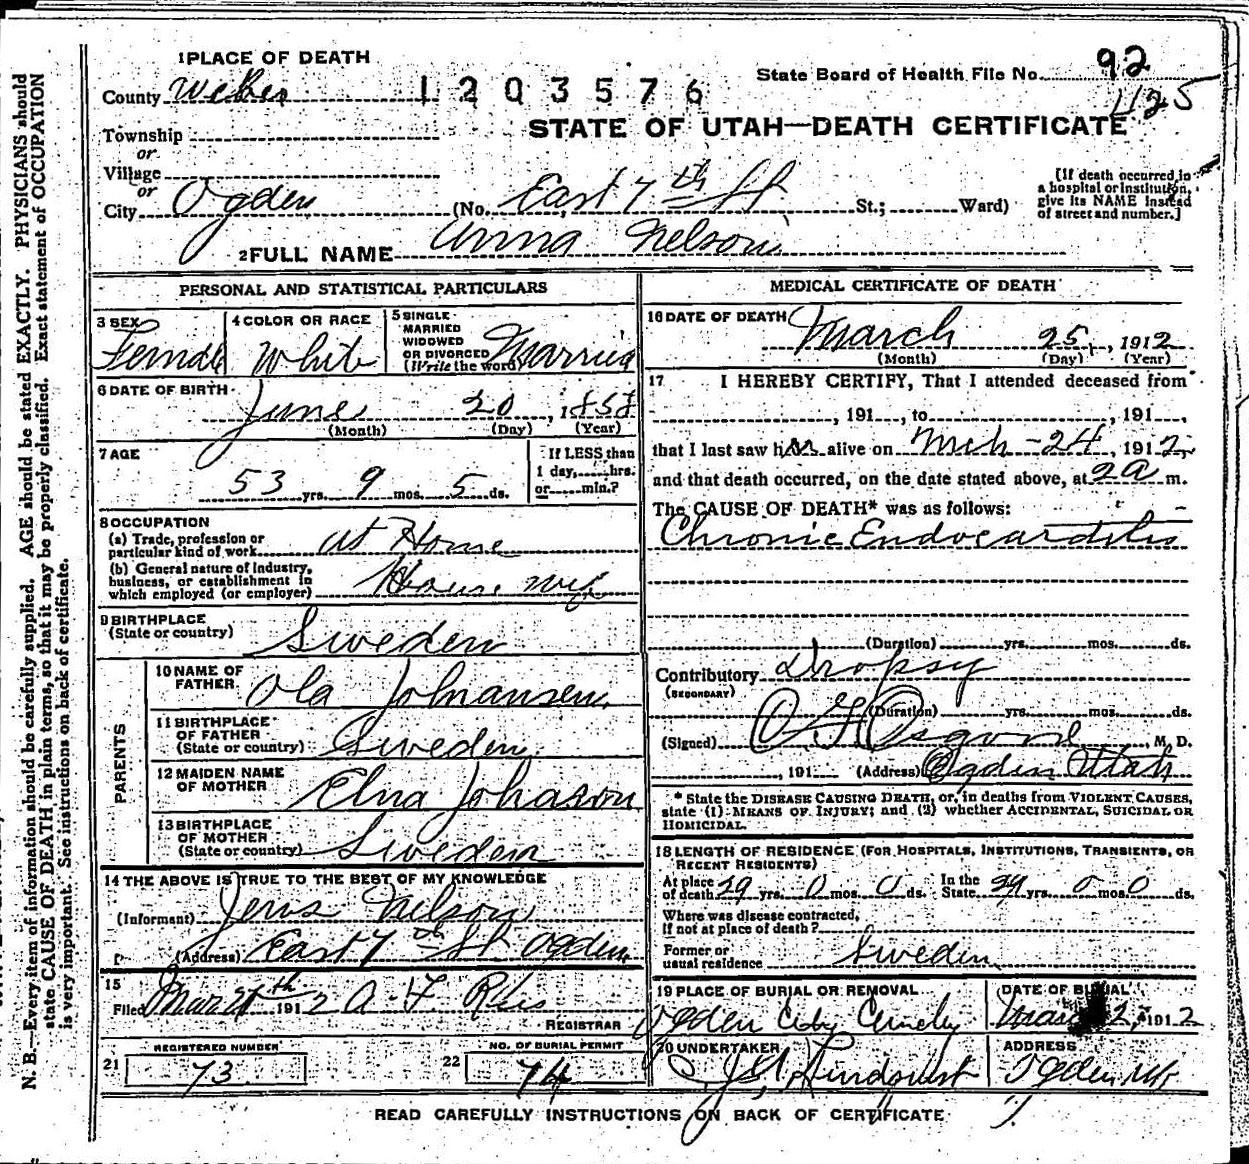 1 PLACE OF DEATH
County Weber 1203576 State Board of Health File No. 92
425
STATE OF UTAH—DEATH CERTIFICATE
Township
or
Village
or
City Ogden (No. East 7th St St.; Ward)
[If death occurred in
a hospital or institution,
give its NAME instead
of street and number.]
2 FULL NAME Anna Nelson
PERSONAL AND STATISTICAL PARTICULARS
3 SEX Female
4 COLOR OR RACE White
5 SINGLE
MARRIED
WIDOWED
OR DIVORCED
(Write the word) Married
6 DATE OF BIRTH
June 20, 1858
(Month) (Day) (Year)
7 AGE
53 yrs. 9 mos. 5 ds.
If LESS than
1 day, hrs.
or min.?
8 OCCUPATION
(a) Trade, profession or
particular kind of work at Home
(b) General nature of Industry,
business, or establishment in
which employed (or employer) House wife
9 BIRTHPLACE
(State or country) Sweden
PARENTS
10 NAME OF
FATHER Ola Johansen
11 BIRTHPLACE
OF FATHER
(State or country) Sweden
12 MAIDEN NAME
OF MOTHER Elna Johason
13 BIRTHPLACE
OF MOTHER
(State or country) Sweden
14 THE ABOVE IS TRUE TO THE BEST OF MY KNOWLEDGE
(Informant) Jens Nelson
(Address) East 7th St Ogden
15
Filed Mar 191 2
REGISTRAR
REGISTERED NUMBER
21 73
NO. OF BURIAL PERMIT
22 74
MEDICAL CERTIFICATE OF DEATH
16 DATE OF DEATH
March 25, 1912
(Month) (Day) (Year)
17 I HEREBY CERTIFY, That I attended deceased from
, 191 , to , 191
that I last saw h alive on Mch - 24, 191 2
and that death occurred, on the date stated above, at 2 a m.
The CAUSE OF DEATH* was as follows:
Chronic Endocarditis
(Duration) yrs. mos. ds.
Contributory Dropsy
(SECONDARY)
(Duration) yrs. mos. ds.
(Signed) Osgood, M. D.
, 191 (Address) Ogden Utah
* State the DISEASE CAUSING DEATH, or, in deaths from VIOLENT CAUSES,
state (1) MEANS OF INJURY; and (2) whether ACCIDENTAL, SUICIDAL OR
HOMICIDAL.
18 LENGTH OF RESIDENCE (FOR HOSPITALS, INSTITUTIONS, TRANSIENTS, OR
RECENT RESIDENTS)
At place
of death 29 yrs. 0 mos. 0 ds. In the
State 29 yrs. 0 mos. 0 ds.
Where was disease contracted,
If not at place of death?
Former or
usual residence Sweden
19 PLACE OF BURIAL OR REMOVAL
Ogden City Cemetery
DATE OF BURIAL
191 2
20 UNDERTAKER
Lindquist
ADDRESS
Ogden Ut
READ CAREFULLY INSTRUCTIONS ON BACK OF CERTIFICATE
N. B.—Every item of information should be carefully supplied. AGE should be stated EXACTLY. PHYSICIANS should
state CAUSE OF DEATH in plain terms, so that it may be properly classified. Exact statement of OCCUPATION
is very important. See instructions on back of certificate.